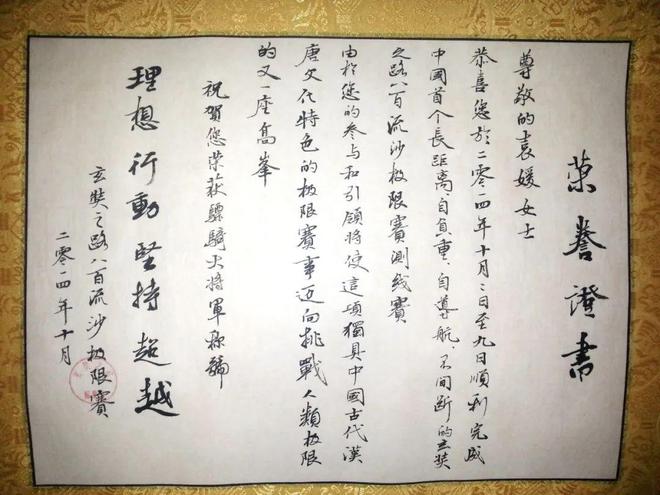 荣誉證书
尊敬的袁媛女士
恭喜您於二零一四年十月二日至九日順利完成
中國首个長距离、自負重、自導航、不间断的玄奘
之路八百流沙极限赛测线赛
由於您的参与和引领将使這項獨具中國古代漢
唐文化特色的极限赛事迈向挑戰人類极限
的又一座高峯
祝賀您荣获驃騎大将軍称號
理想行動堅持超越
玄奘之路八百流沙极限赛
二零一四年十月